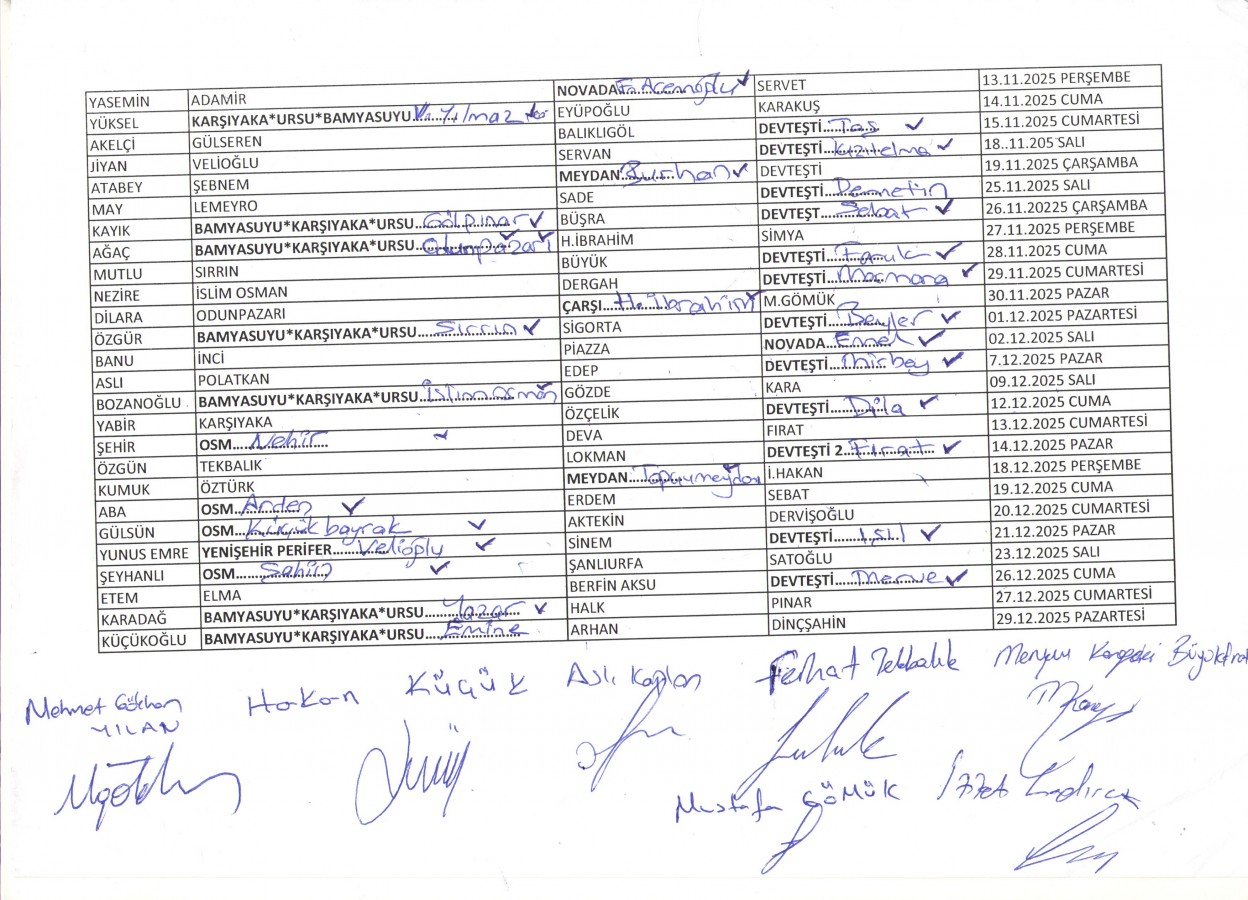 YASEMİN ADAMİR NOVADA F.Acemoğlu ✓ SERVET 13.11.2025 PERŞEMBE
YÜKSEL KARŞIYAKA*URSU*BAMYASUYU.......V. Yılmaz EYÜPOĞLU KARAKUŞ 14.11.2025 CUMA
AKELÇİ GÜLSEREN BALIKLIGÖL DEVTEŞTİ....Taş..... ✓ 15.11.2025 CUMARTESİ
JİYAN VELİOĞLU SERVAN DEVTEŞTİ....Kızılelma ✓ 18..11.205 SALI
ATABEY ŞEBNEM MEYDAN....Burhan ✓ DEVTEŞTİ 19.11.2025 ÇARŞAMBA
MAY LEMEYRO SADE DEVTEŞTİ....Demetin 25.11.2025 SALI
KAYIK BAMYASUYU*KARŞIYAKA*URSU....Gölpınar ✓ BÜŞRA DEVTEŞT....Sebat ✓ 26.11.20225 ÇARŞAMBA
AĞAÇ BAMYASUYU*KARŞIYAKA*URSU....Odunpazarı ✓ H.İBRAHİM SİMYA 27.11.2025 PERŞEMBE
MUTLU SIRRIN BÜYÜK DEVTEŞTİ....Faruk ✓ 28.11.2025 CUMA
NEZİRE İSLİM OSMAN DERGAH DEVTEŞTİ....Marmara ✓ 29.11.2025 CUMARTESİ
DİLARA ODUNPAZARI ÇARŞI....H.İbrahim ✓ M.GÖMÜK 30.11.2025 PAZAR
ÖZGÜR BAMYASUYU*KARŞIYAKA*URSU....Sırrın ✓ SİGORTA DEVTEŞTİ....Beyler ✓ 01.12.2025 PAZARTESİ
BANU İNCİ PİAZZA NOVADA....Emel ✓ 02.12.2025 SALI
ASLI POLATKAN EDEP DEVTEŞTİ....Mirbey ✓ 7.12.2025 PAZAR
BOZANOĞLU BAMYASUYU*KARŞIYAKA*URSU....İslim Osman ✓ GÖZDE KARA 09.12.2025 SALI
YABİR KARŞIYAKA ÖZÇELİK DEVTEŞTİ....Dila ✓ 12.12.2025 CUMA
ŞEHİR OSM....Nehir ✓ DEVA FIRAT 13.12.2025 CUMARTESİ
ÖZGÜN TEKBALIK LOKMAN DEVTEŞTİ 2....Fırat ✓ 14.12.2025 PAZAR
KUMUK ÖZTÜRK MEYDAN....Topçumeydan ✓ İ.HAKAN 18.12.2025 PERŞEMBE
ABA OSM....Arden ✓ ERDEM SEBAT 19.12.2025 CUMA
GÜLSÜN OSM....Küçükbayrak ✓ AKTEKİN DERVİŞOĞLU 20.12.2025 CUMARTESİ
YUNUS EMRE YENİŞEHİR PERİFER....Velioğlu ✓ SİNEM DEVTEŞTİ....Işıl ✓ 21.12.2025 PAZAR
ŞEYHANLI OSM....Şahin ✓ ŞANLIURFA SATOĞLU 23.12.2025 SALI
ETEM ELMA BERFİN AKSU DEVTEŞTİ....Merve ✓ 26.12.2025 CUMA
KARADAĞ BAMYASUYU*KARŞIYAKA*URSU....Yazar ✓ HALK PINAR 27.12.2025 CUMARTESİ
KÜÇÜKOĞLU BAMYASUYU*KARŞIYAKA*URSU....Emine ARHAN DİNÇŞAHİN 29.12.2025 PAZARTESİ
Mehmet Gökhan YILAN
Hakan KÜÇÜK
Aslı Kaplan
Ferhat Tekbalık
Meryem
Mustafa GÖMÜK
İzzet